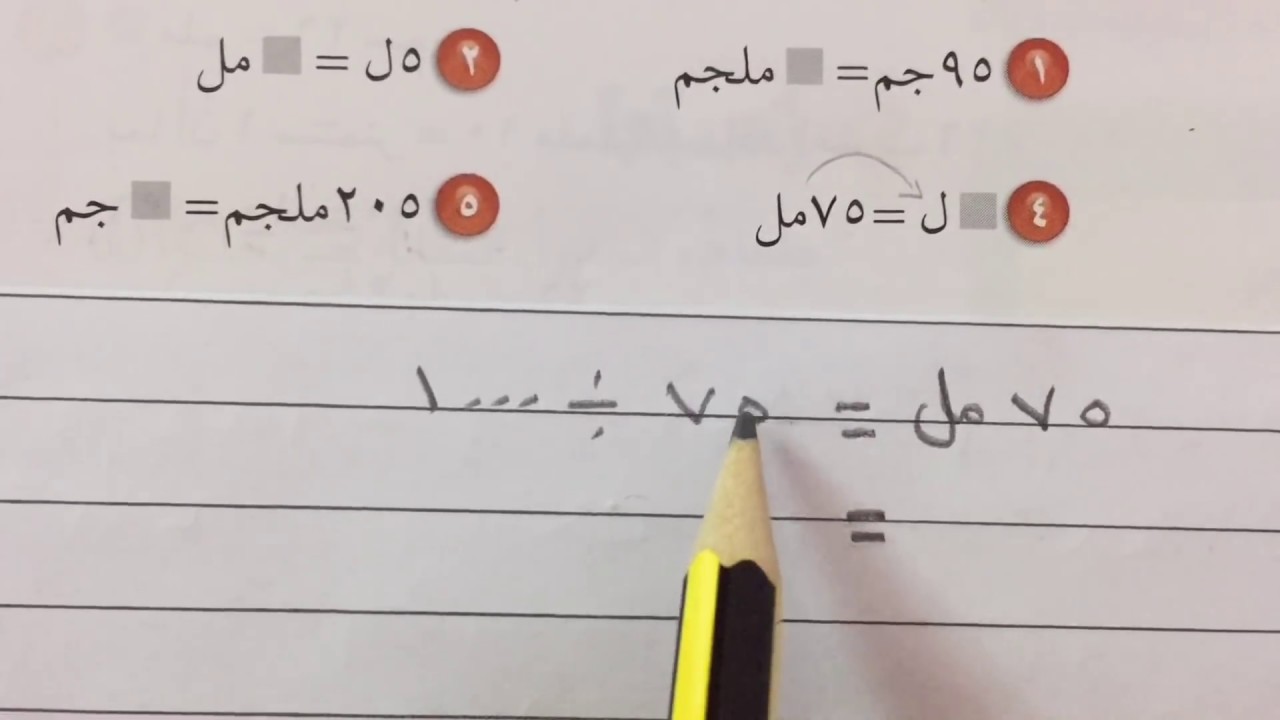 ١ ٩٥ جم = ■ ملجم ٢ ٥ل = ■ مل
٤ ■ ل = ٧٥ مل ٥ ٢٠٥ ملجم = ■ جم
٧٥ مل = ٧٥ ÷ ١٠٠٠
=